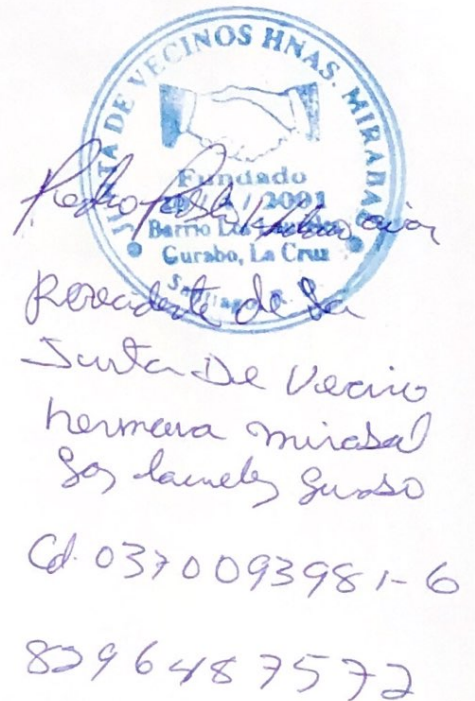 JUNTA DE VECINOS HNAS. MIRABAL
Fundado
/ 2001
Barrio Los
Gurabo, La Cruz
Santiago, R. D.
Pedro Pablo
de la
Junta De Vecino
hermana mirabal
Los laureles Gurabo
Cd. 0370093981-6
8296487572